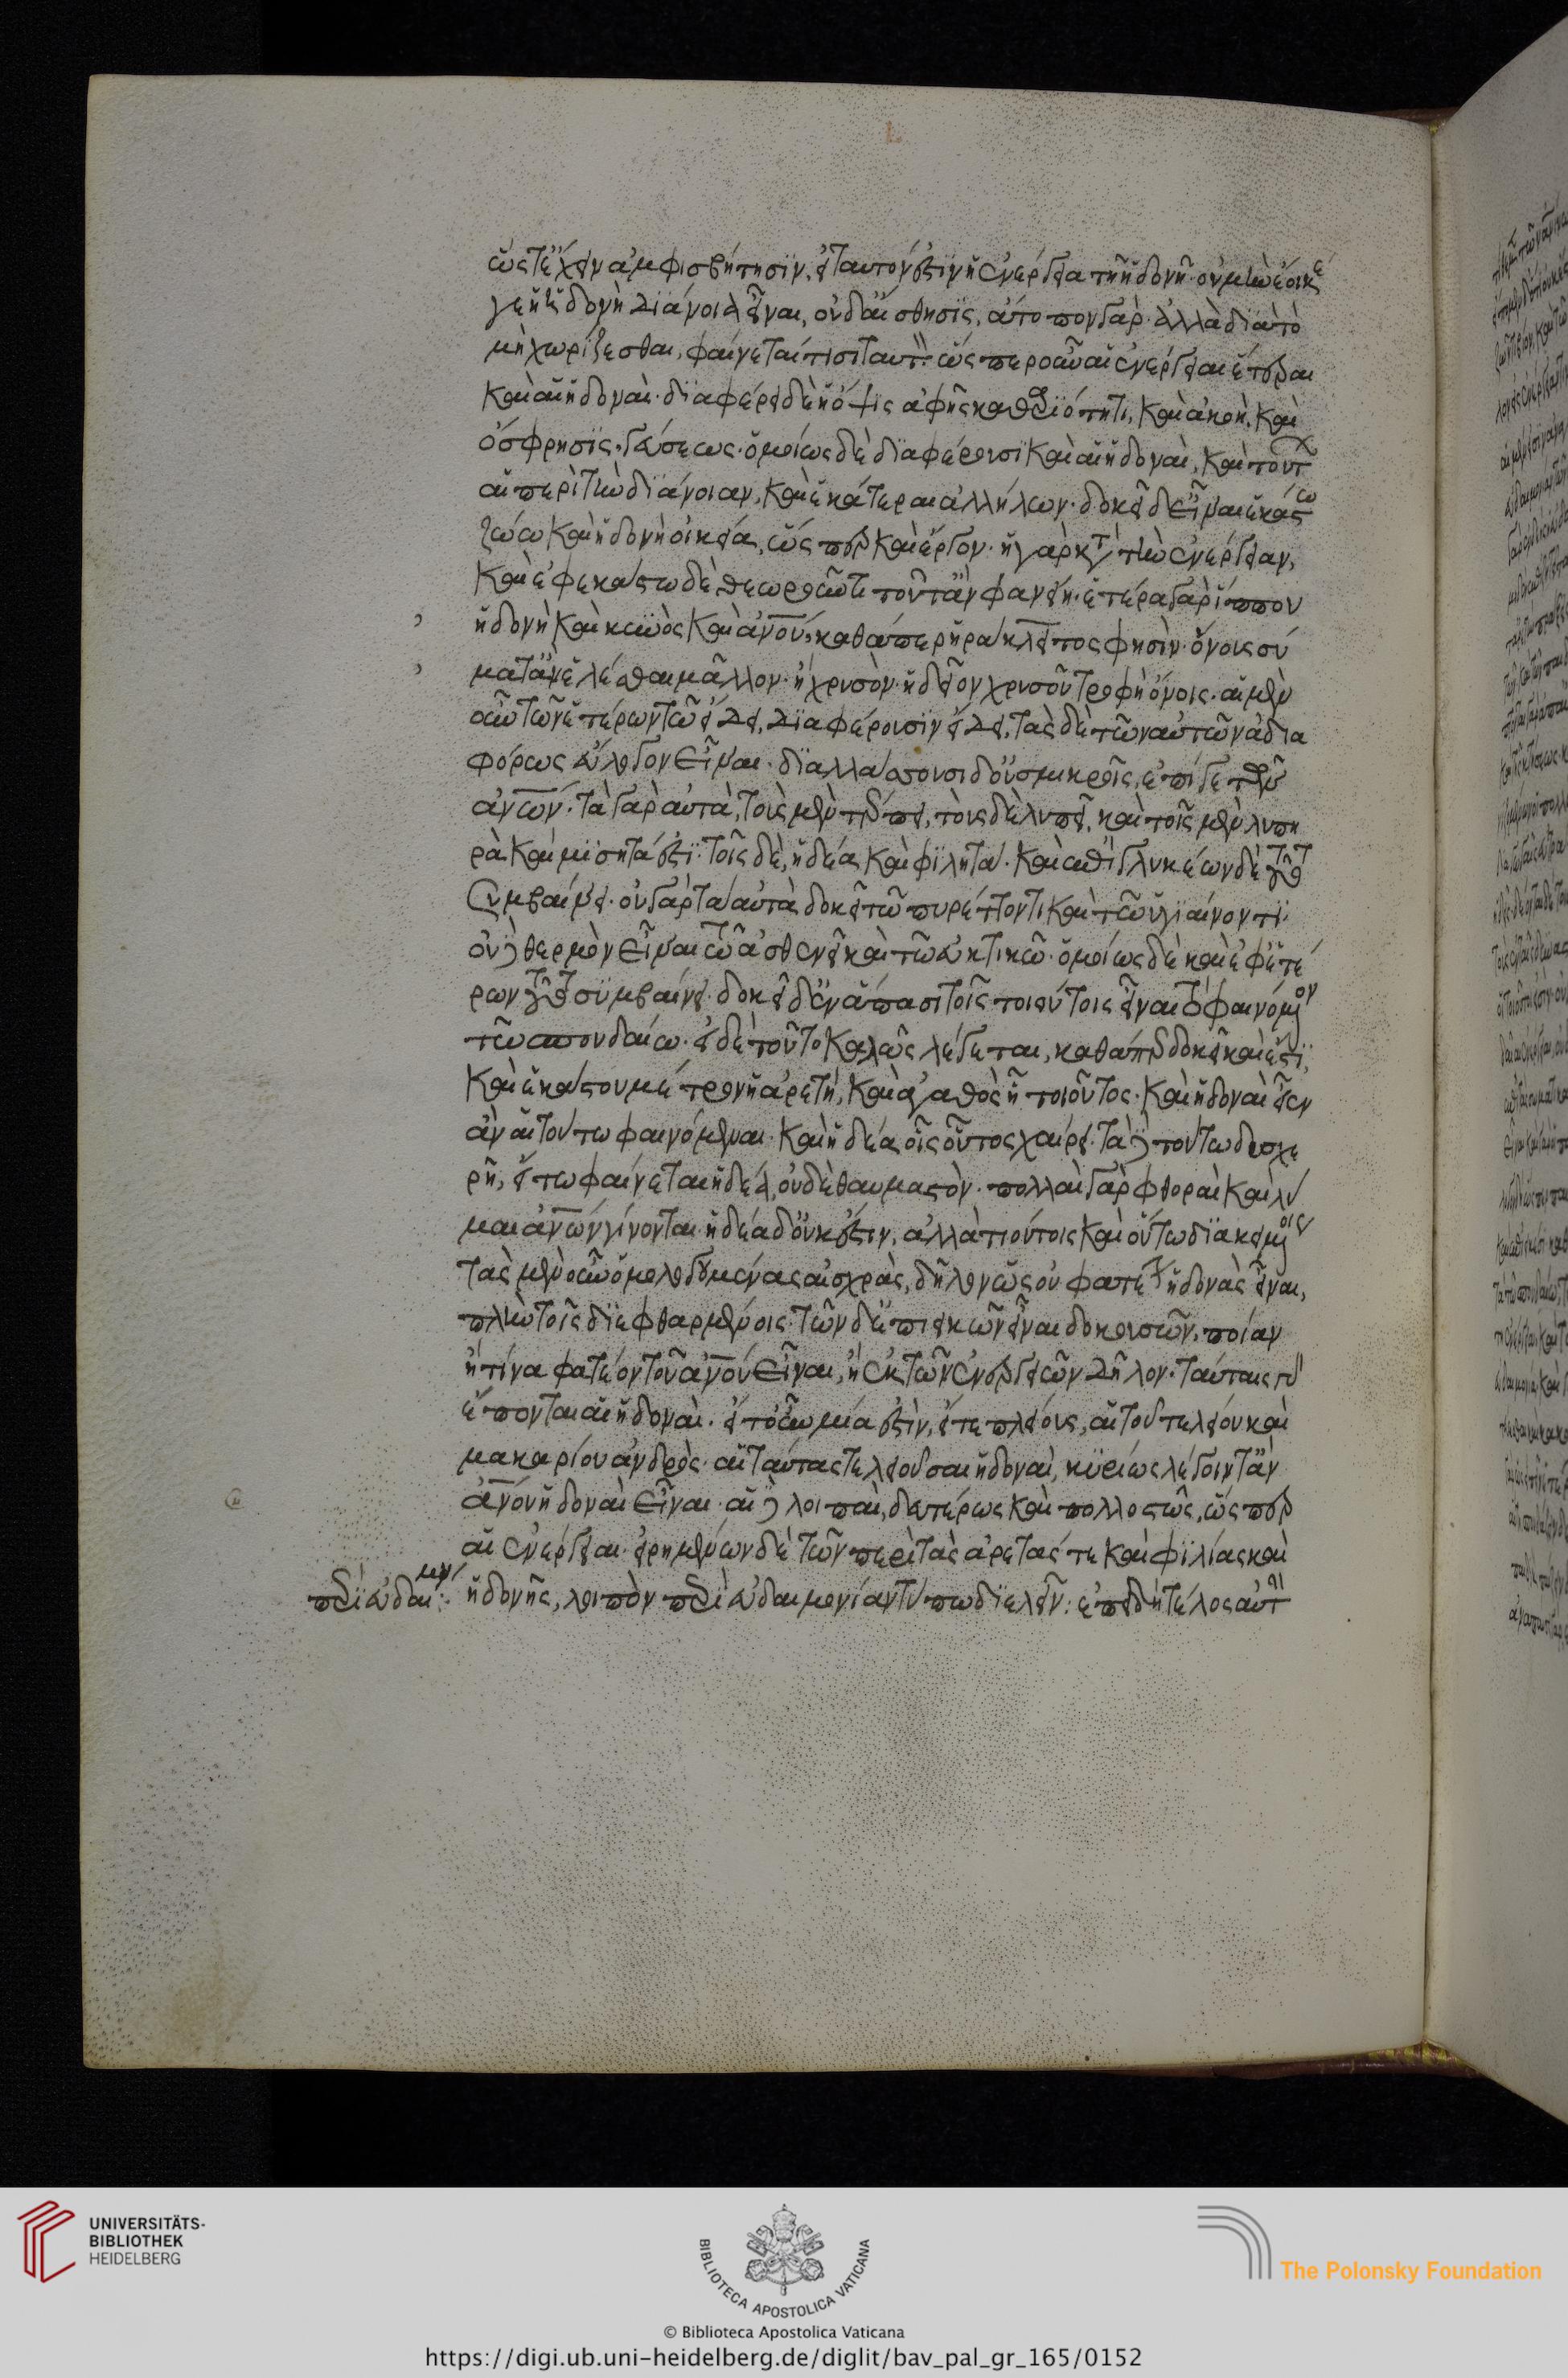 ὥστ' ἔχειν ἀμφισβήτησιν, εἰ ταυτόν ἐστιν ἡ ἐνέργεια τῇ ἡδονῇ· οὐ μὴν ἔοικέ
γε ἡ ἡδονὴ διάνοια εἶναι, οὐδ' αἴσθησις, ἄτοπον γὰρ· ἀλλὰ διὰ τὸ
μὴ χωρίζεσθαι, φαίνεταί τισι ταυτόν· ὥσπερ οὖν αἱ ἐνέργειαι ἕτεραι
καὶ αἱ ἡδοναί· διαφέρει δὲ ἡ ὄψις ἁφῆς καθαριότητι, καὶ ἀκοὴ, καὶ
ὄσφρησις, γεύσεως· ὁμοίως δὲ διαφέρουσι καὶ αἱ ἡδοναὶ, καὶ τούτων
αἱ περὶ τὴν διάνοιαν, καὶ ἑκάτεραι ἀλλήλων· δοκεῖ δ' εἶναι ἑκάστω
ζώω καὶ ἡδονὴ οἰκεία, ὥσπερ καὶ ἔργον· ἡ γὰρ κατὰ τὴν ἐνέργειαν,
καὶ ἐφ' ἑκάστω δὲ θεωροῦντι τοῦτ' ἂν φανείη· ἑτέρα γὰρ ἵππου
ἡδονὴ καὶ κυνὸς καὶ ἀνου, καθάπερ ἡράκλειτος φησὶν· ὄνους σύ
ματ' ἂν ἑλέσθαι μᾶλλον· ἢ χρυσὸν· ἥδειον χρυσοῦ τροφὴ ὄνοις· αἱ μὲν
οὖν τῶν ἑτέρων τῶ εἴδει, διαφέρουσιν εἴδει, τὰς δὲ τῶν αὐτῶν ἀδια
φόρως εὔλογον εἶναι· διαλλάττουσι δ' οὐ σμικρῶς, ἐπί γε τῶν
ἀνων· τὰ γὰρ αὐτὰ, τοὺς μὲν τέρπει, τοὺς δὲ λυπεῖ, καὶ τοῖς μὲν λυπη
ρὰ καὶ μισητά ἐστι· τοῖς δὲ, ἡδέα καὶ φιλητά· καὶ ἐπὶ γλυκέων δὲ τοῦτο
συμβαίνει· οὐ γὰρ τὰ αὐτὰ δοκεῖ τῶ πυρέττοντι καὶ τῶ ὑγιαίνοντι·
οὐδὲ θερμὸν εἶναι τῶ ἀσθενεῖ καὶ τῶ εὐεκτικῶ· ὁμοίως δὲ καὶ ἐφ' ἑτέ
ρων τοῦτο συμβαίνει· δοκεῖ δ' ἐν ἅπασι τοῖς τοιούτοις εἶναι τὸ φαινόμενον
τῶ σπουδαίω· εἰ δὲ τοῦτο καλῶς λέγεται, καθάπερ δοκεῖ καὶ ἔστι,
καὶ ἑκάστου μέτρον ἡ ἀρετή, καὶ ἀγαθὸς ᾗ τοιοῦτος· καὶ ἡδοναὶ εἶεν
ἂν αἱ τούτω φαινόμεναι· καὶ ἡδέα οἷς οὗτος χαίρει· τὰ δὲ τούτω δυσχε
ρῆ, εἴ τω φαίνεται ἡδέα, οὐδὲν θαυμαστὸν· πολλαὶ γὰρ φθοραὶ καὶ λῦ
μαι ἀνων γίνονται· ἡδέα δ' οὐκ ἔστιν, ἀλλὰ τούτοις καὶ οὕτω διακειμένοις
τὰς μὲν οὖν ὁμολογουμένας αἰσχρὰς, δῆλον ὡς οὐ φατέον ἡδονὰς εἶναι,
πλὴν τοῖς διεφθαρμένοις· τῶν δ' ἐπιεικῶν εἶναι δοκουσῶν, ποίαν
ἢ τίνα φατέον τοῦ ἀνου εἶναι, ἢ ἐκ τῶν ἐνεργειῶν δῆλον· ταύταις γὰρ
ἕπονται αἱ ἡδοναὶ· εἴτ' οὖν μία ἐστὶν, εἴτε πλείους, αἱ τοῦ τελείου καὶ
μακαρίου ἀνδρὸς· αἱ ταύτας τελειοῦσαι ἡδοναὶ, κυρίως λέγοιντ' ἂν
ἀνου ἡδοναὶ εἶναι· αἱ δὲ λοιπαὶ, δευτέρως καὶ πολλοστῶς, ὥσπερ
αἱ ἐνέργειαι· εἰρημένων δὲ τῶν περὶ τὰς ἀρετάς τε καὶ φιλίας καὶ
περὶ εὐδαιμον· ἡδονῆς, λοιπὸν περὶ εὐδαιμονίαν τύπω διελεῖν· ἐπειδὴ τέλος αὐτὴν
UNIVERSITÄTS-
BIBLIOTHEK
HEIDELBERG
BIBLIOTECA APOSTOLICA VATICANA
The Polonsky Foundation
© Biblioteca Apostolica Vaticana
https://digi.ub.uni-heidelberg.de/diglit/bav_pal_gr_165/0152